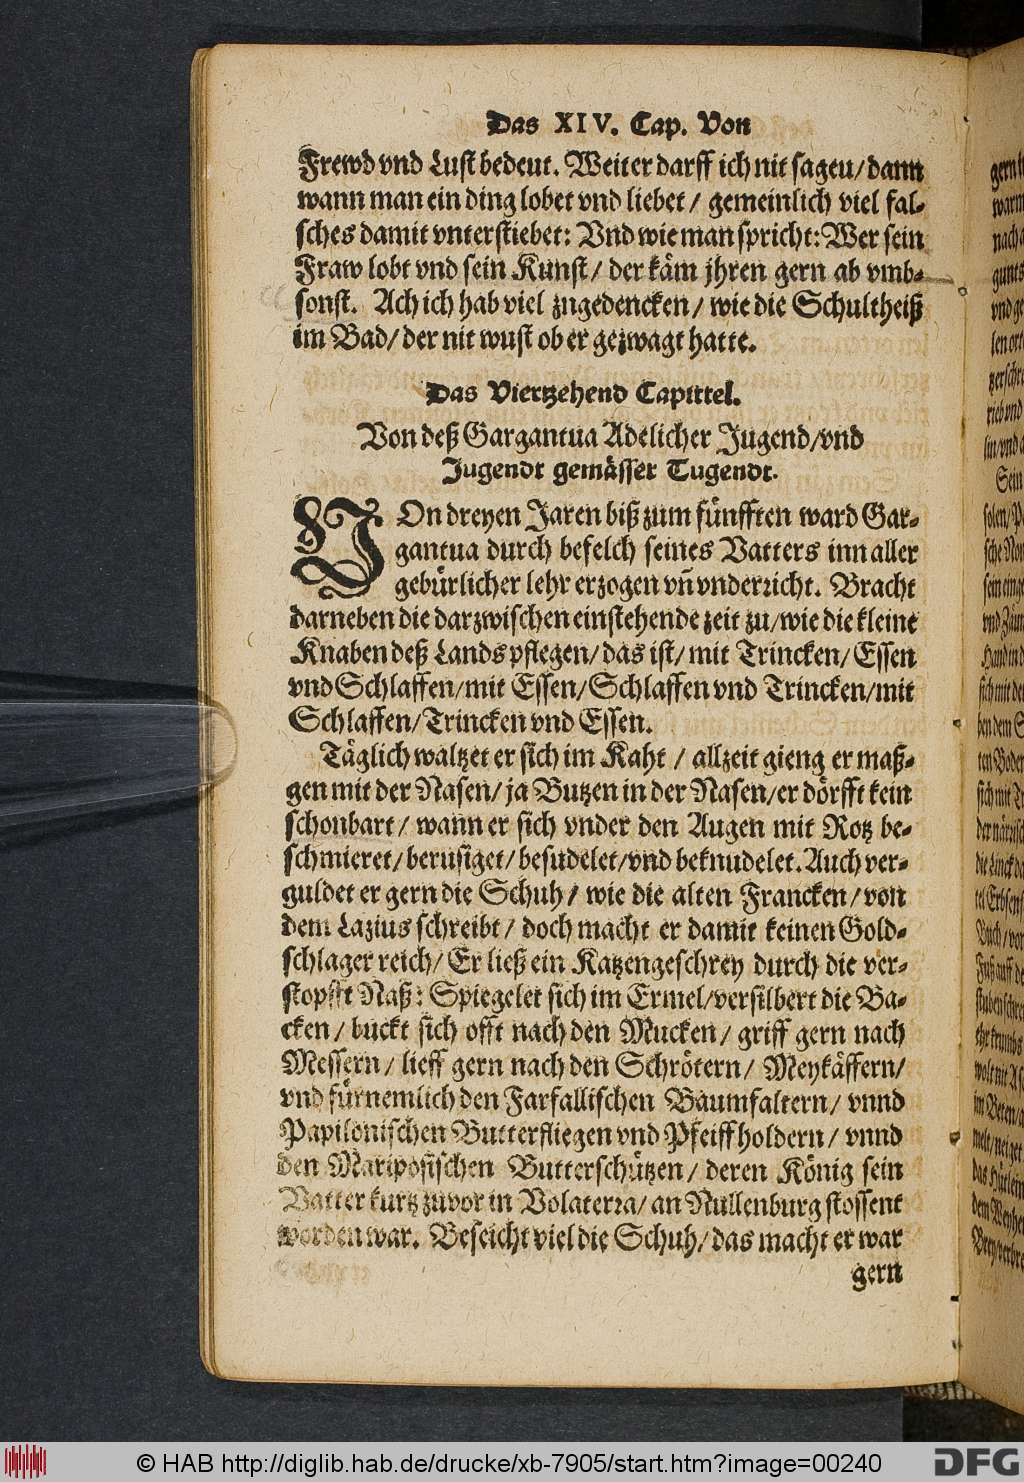 Das XIV. Cap. Von
Frewd vnd Lust bedeut. Weiter darff ich nit sageu/ dann
wann man ein ding lobet vnd liebet / gemeinlich viel fal-
sches damit vnterstiebet: Vnd wie man spricht: Wer sein
Fraw lobt vnd sein Kunst/ der käm jhren gern ab vmb-
sonst. Ach ich hab viel zugedencken/ wie die Schultheiß
im Bad/ der nit wust ob er gezwagt hatte.
Das Viertzehend Capittel.
Von deß Gargantua Adelicher Jugend/vnd
Jugendt gemässer Tugendt.
VOn dreyen Jaren biß zum fünfften ward Gar-
gantua durch befelch seines Vatters inn aller
gebürlicher lehr erzogen vn̄ vnderricht. Bracht
darneben die darzwischen einstehende zeit zu/ wie die kleine
Knaben deß Lands pflegen/ das ist/ mit Trincken/ Essen
vnd Schlaffen/mit Essen/Schlaffen vnd Trincken/mit
Schlaffen/Trincken vnd Essen.
Täglich waltzet er sich im Kaht / allzeit gieng er maß-
gen mit der Nasen/ ja Butzen in der Nasen/er dörfft kein
schonbart/ wann er sich vnder den Augen mit Rotz be-
schmieret/ berusiget/ besudelet/vnd beknudelet. Auch ver-
guldet er gern die Schuh/ wie die alten Francken/ von
dem Lazius schreibt/ doch macht er damit keinen Gold-
schlager reich/ Er ließ ein Katzengeschrey durch die ver-
stopfft Naß: Spiegelet sich im Ermel/versilbert die Ba-
cken/ buckt sich offt nach den Mucken/ griff gern nach
Messern/ lieff gern nach den Schrötern/ Meykäffern/
vnd fürnemlich den Farfallischen Baumfaltern/ vnnd
Papilonischen Butterfliegen vnd Pfeiffholdern/ vnnd
den Mariposischen Butterschützen/ deren König sein
Vatter kurtz zuvor in Volaterra/ an Nullenburg stossent
worden war. Beseicht viel die Schuh/ das macht er war
gern
© HAB http://diglib.hab.de/drucke/xb-7905/start.htm?image=00240
DFG